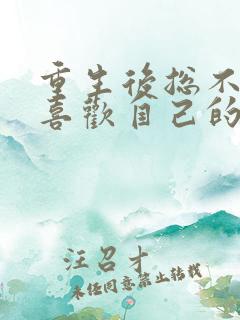 重生後总不
喜歡自己的
汪召才
未经同意禁止转载